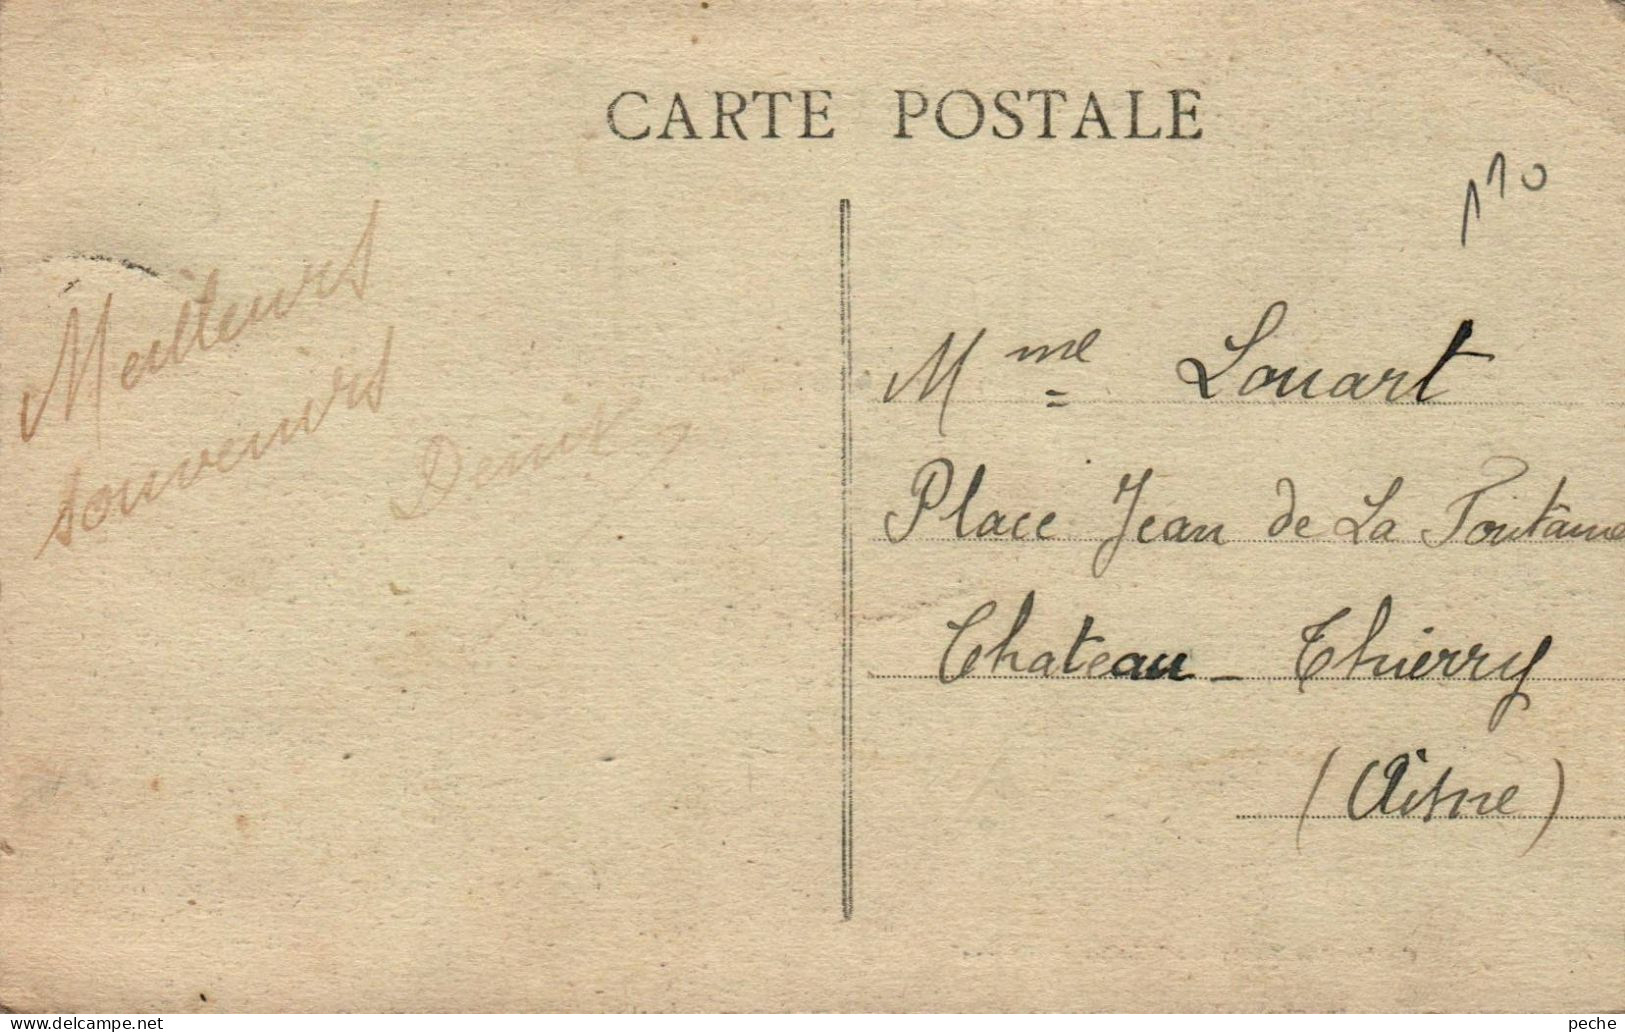 CARTE POSTALE
110
Meilleurs
souvenirs
Mme Louart
Place Jean de La Fontaine
Chateau-Thierry
(Aisne)
www.delcampe.net
peche